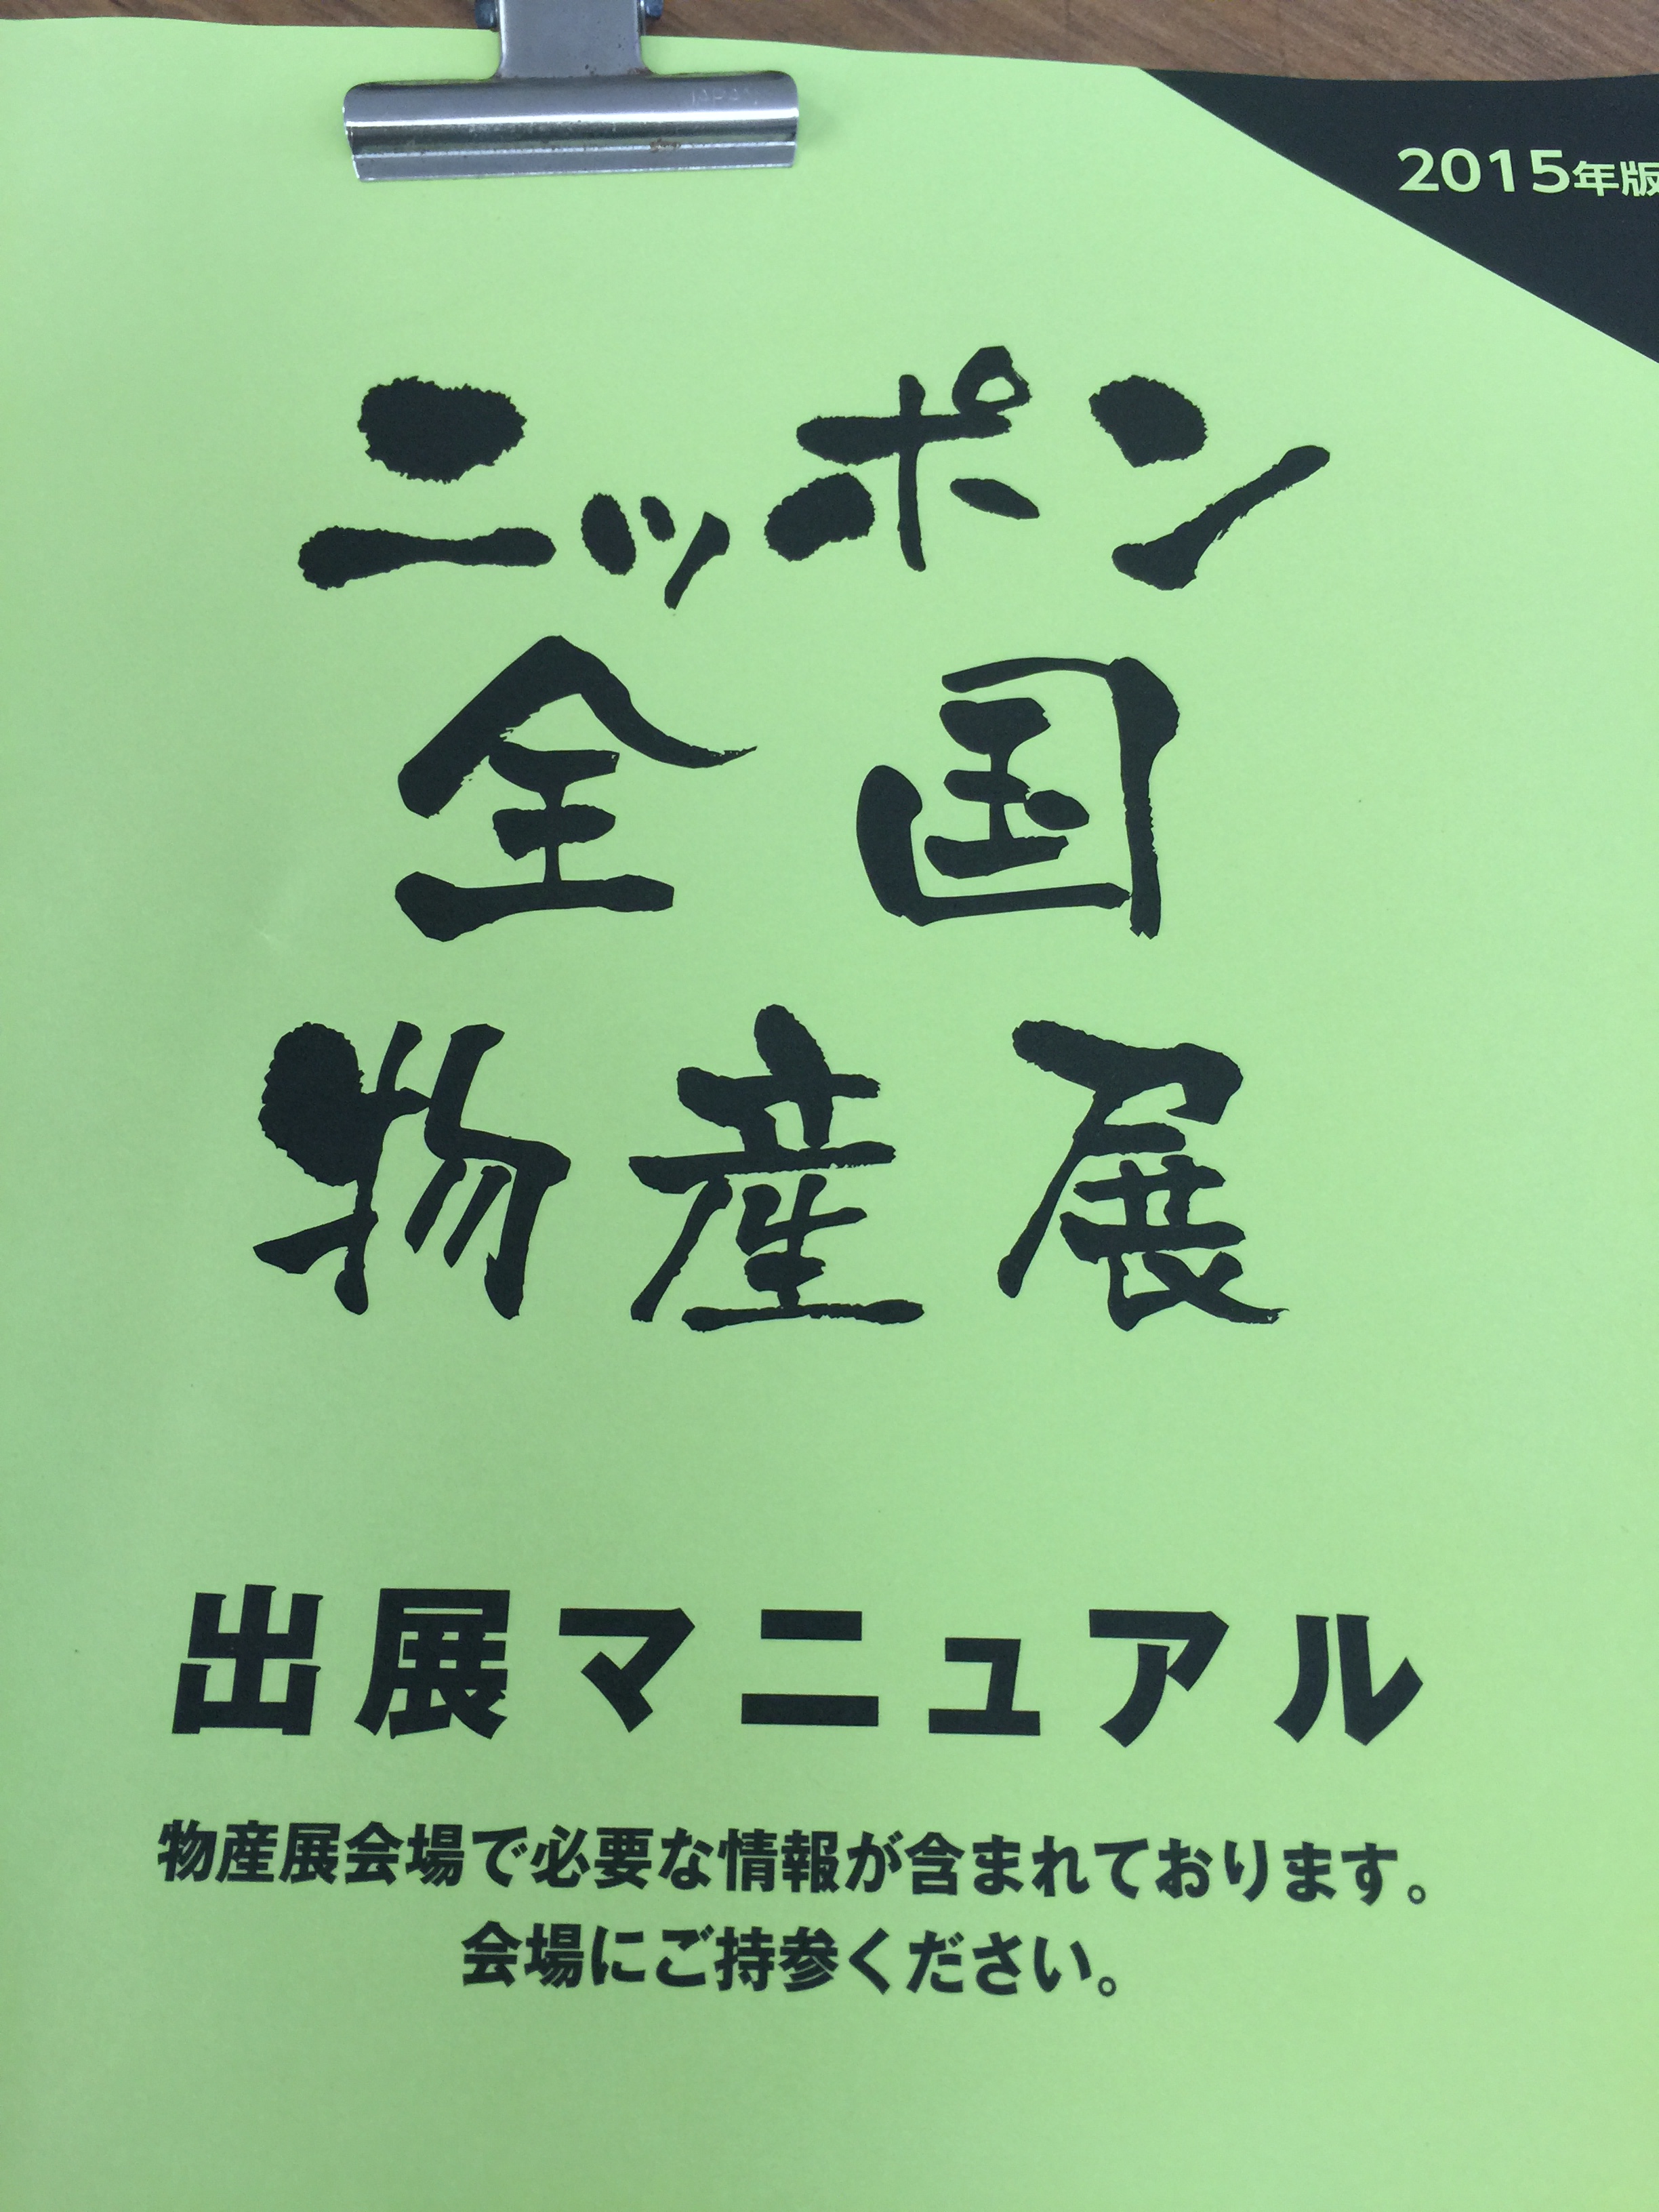 2015年版
ニッポン
全国
物産展
出展マニュアル
物産展会場で必要な情報が含まれております。
会場にご持参ください。